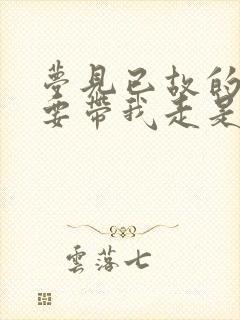 夢見已故的
要帶我走是
雲落七